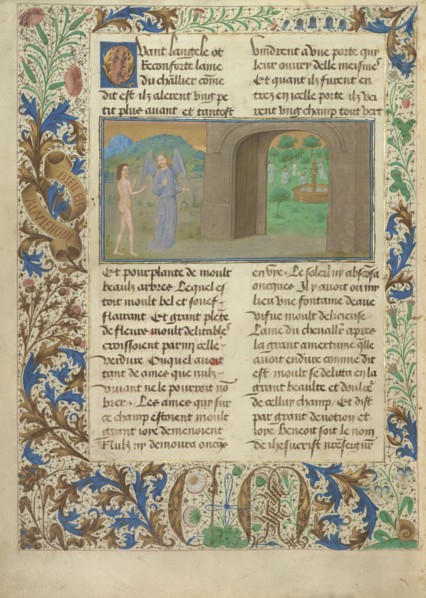 Quant langele ot
Reconforte lame
du chlier come
dit est ilz alerent ung pe
tit plus avant et tantost
Et pour plante de moult
beaulx arbres. Lequel es
toit moult bel et souef
flairant Et grant plete
de fleurs moult delitables
croissoient parmi celle
verdure Ouquel avoit
tant de ames que nulz
vivant ne le pourroit no
brer. Les ames qui sur
ce champ estoient moult
grant ioye demenoient
Nulz ny demoura oncqs
vindrent a une porte qui
leur ouvry delle mesmes
Et quant ilz furent en
trez en celle porte ilz vei
rent ung champ tout vert
en vye. Le soleil ny absconsa
oncques. Il y avoit ou my
lieu une fontaine deaue
vifue moult delicieuse
Lame du chevallier apres
la grant amertume quelle
avoit endure comme dit
est moult se delitta en la
grant beaulte et doulceur
de celluy champ Et dist
par grant devotion et
ioye. Benoit soit le nom
de ihesucrist nreseigneur